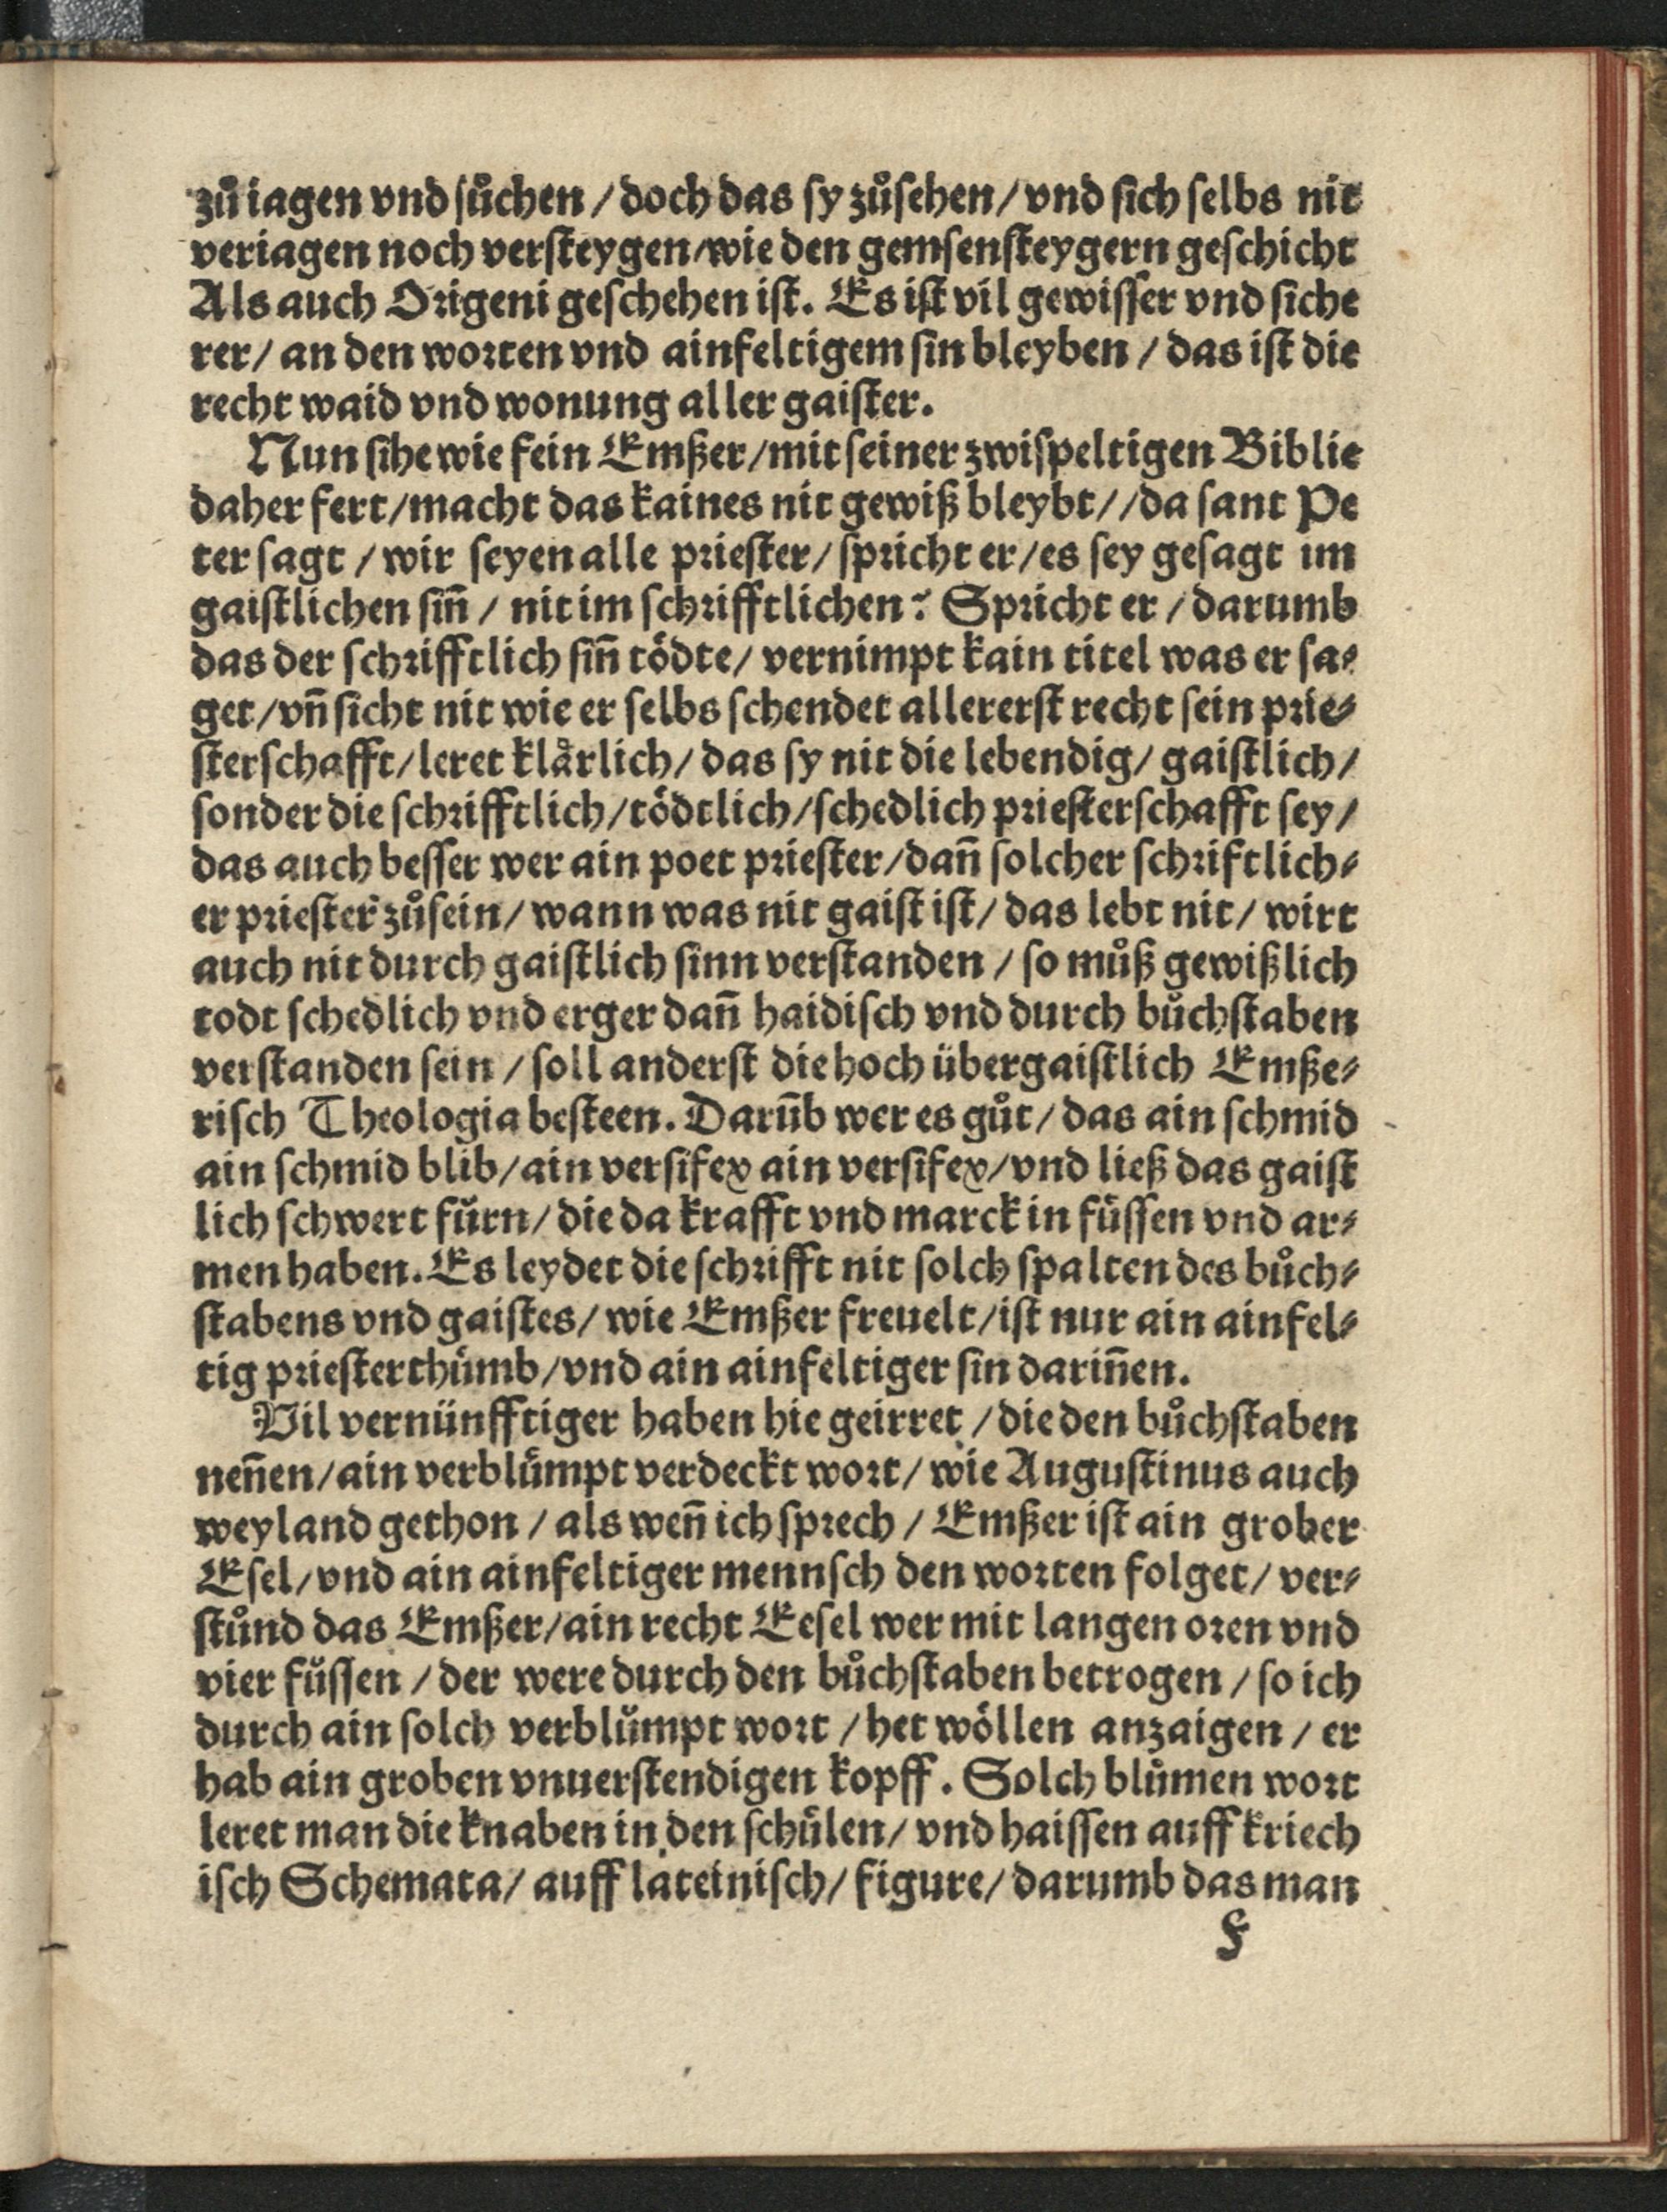 zů iagen vnd sůchen / doch das sy zůsehen / vnd sich selbs nit
veriagen noch versteygen / wie den gemsensteygern geschicht
Als auch Origeni geschehen ist. Es ist vil gewisser vnd siche
rer / an den worten vnd ainfeltigem sin bleyben / das ist die
recht waid vnd wonung aller gaister.
Nun sihe wie fein Emßer / mit seiner zwispeltigen Biblie
daher fert / macht das kaines nit gewiß bleybt / / da sant Pe
ter sagt / wir seyen alle priester / spricht er / es sey gesagt im
gaistlichen sin̄ / nit im schrifftlichen? Spricht er / darumb
das der schrifftlich sin̄ tödte / vernimpt kain titel was er sa⸗
get / vn̄ sicht nit wie er selbs schendet allererst recht sein prie⸗
sterschafft / leret klårlich / das sy nit die lebendig / gaistlich /
sonder die schrifftlich / tödtlich / schedlich priesterschafft sey /
das auch besser wer ain poet priester / dan̄ solcher schriftlich⸗
er priester zůsein / wann was nit gaist ist / das lebt nit / wirt
auch nit durch gaistlich sinn verstanden / so můß gewißlich
todt schedlich vnd erger dan̄ haidisch vnd durch bůchstaben
verstanden sein / soll anderst die hoch übergaistlich Emße⸗
risch Theologia besteen. Darūb wer es gůt / das ain schmid
ain schmid blib / ain versifex ain versifex / vnd ließ das gaist
lich schwert fürn / die da krafft vnd marck in füssen vnd ar⸗
men haben. Es leydet die schrifft nit solch spalten des bůch⸗
stabens vnd gaistes / wie Emßer freuelt / ist nur ain ainfel⸗
tig priesterthůmb / vnd ain ainfeltiger sin darin̄en.
Vil vernünfftiger haben hie geirret / die den bůchstaben
nen̄en / ain verblůmpt verdeckt wort / wie Augustinus auch
weyland gethon / als wen̄ ich sprech / Emßer ist ain grober
Esel / vnd ain ainfeltiger mennsch den worten folget / ver⸗
stůnd das Emßer / ain recht Eesel wer mit langen oren vnd
vier füssen / der were durch den bůchstaben betrogen / so ich
durch ain solch verblůmpt wort / het wöllen anzaigen / er
hab ain groben vnuerstendigen kopff. Solch blůmen wort
leret man die knaben in den schůlen / vnd haissen auff kriech
isch Schemata / auff lateinisch / figure / darumb das man
F